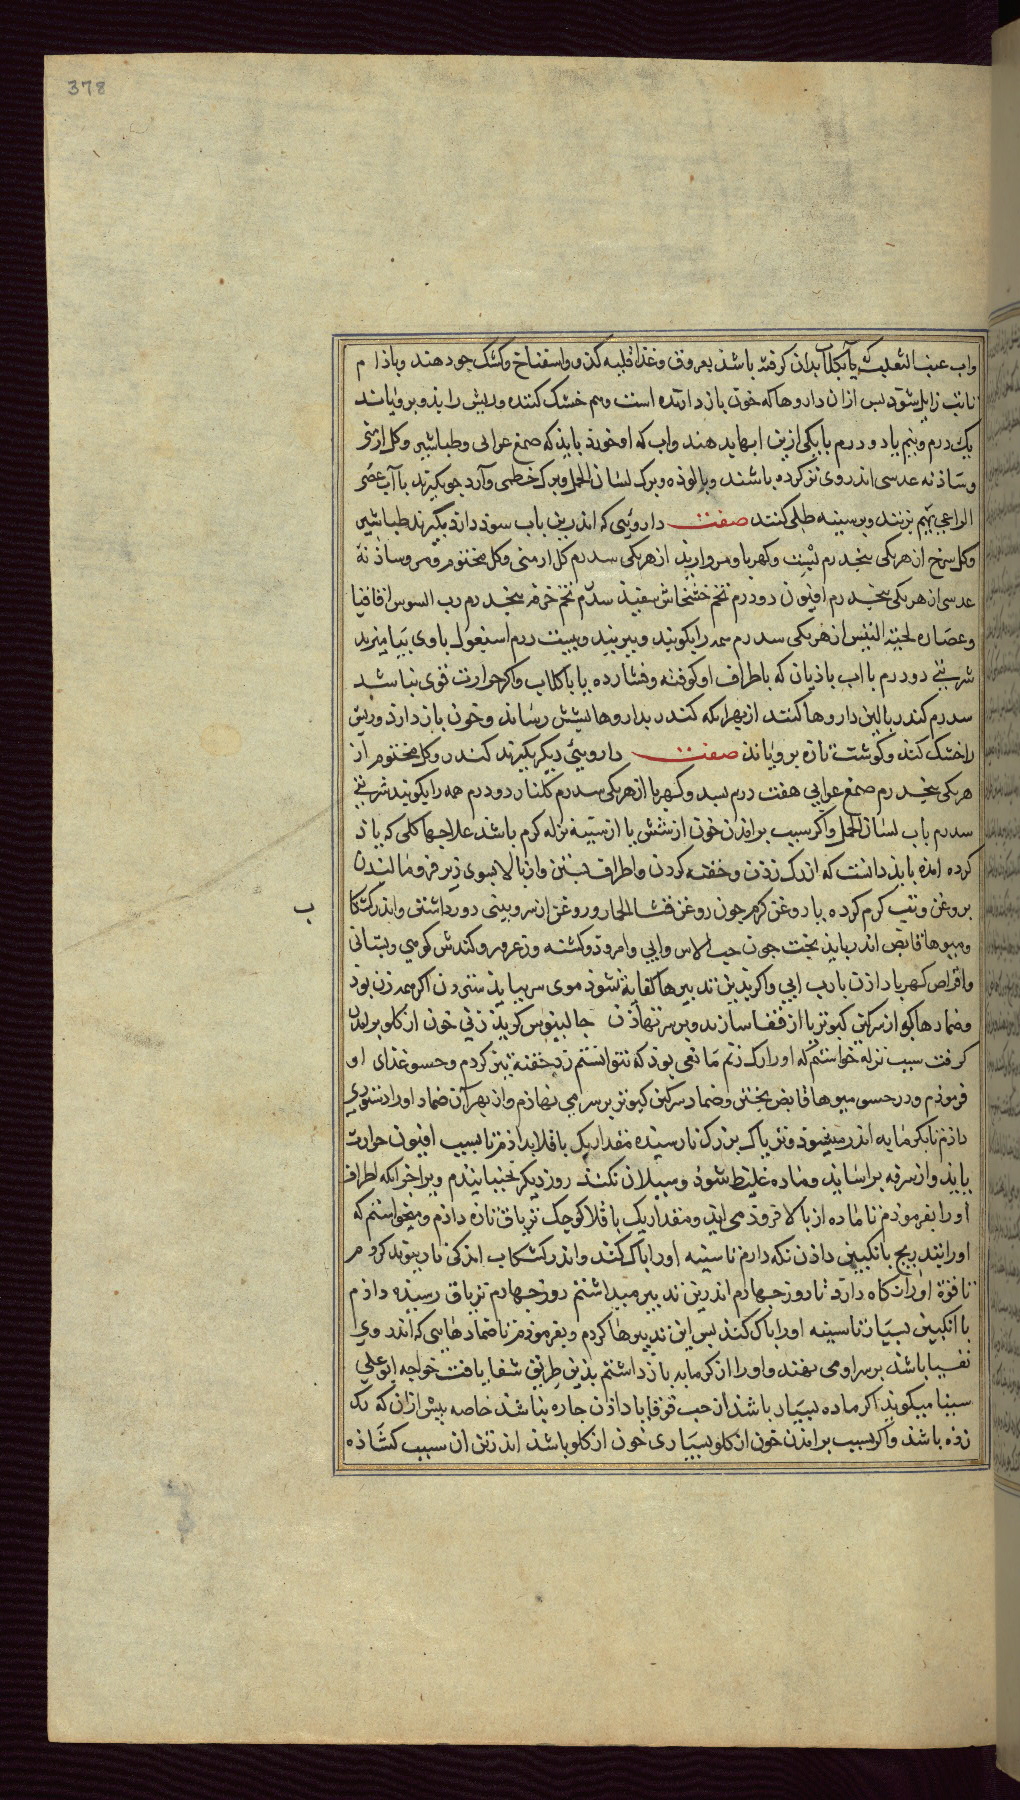 378
واب عنب الثعلب که یا بکلاب بدان کرفته باشد بعروق وغذا قلیه کذو واسفناخ وکشک جو دهند وباذام
تا تب زایل شود بس ازان داروها که خون باز دارنده است وهم خشک کننده وریش را بذو برویاند
یک درم ونیم یا دو درم با یکی ازین ابها بدهند واب که او خورد بایذ که صمغ عرابی وطباشیر وکل ارمنی
وشاذنه عدسی اندر وی تر کرده باشند وبالوذه وبرک لسان الحمل وبرک خطمی وآرد جو بکیرند باآب عصی
الراعی بهم بزنند وبر سینه طلی کنند صفت داروئی که اندرین باب سوذ دارد بکیرند طباشیر
وکل سرخ از هر یکی پنجدرم بسد وکهربا ومروارید از هر یکی سدرم کل ارمنی وکل مختوم وشاذنه
عدسی از هر یکی پنجدرم افیون دودرم تخم خشخاش سفید سدرم تخم خرفه پنجدرم رب السوس اقاقیا
وعصاره لحیة التیس از هر یکی سدرم همه را بکوبند وببیزند وبیست درم اسبغول باوی بیامیزند
شربتی دودرم با اب باذیان که باطراف او کوفته وفشارده یا با کلاب واکر حرارت قوی نباشد
سدرم کندر با این داروها کنند از بهر انکه کندر بداروها بشش رساند وخون باز دارد وریش
را خشک کند وکوشت تازه برویاند صفت داروئی دیکر بکیرند کندر وکل مختوم از
هر یکی پنجدرم صمغ عرابی هفت درم بسد وکهربا از هر یکی سدرم کلنار دودرم همه را بکوبند شربتی
سدرم باب لسان الحمل واکر سبب برامذن خون از شش یا از سینه نزله کرم باشد علاجها کلی که یاد
کرده امذه بایذ دانست که از رک زذن وحقنه کردن واطراف بستن واز بالا بسوی زیر فرو مالیدن
بروغن وتب کرم کرده با روغن کرم چون روغن قثاء الحمار وروغن از سر وبینی دور داشتن واندر کشکا
ب
ومیوها قابض اندر باید بخت چون حب الاس وابی وامرود وکشنه وزعرور وکندس کوهی وبستانی
واقراص کهربا دادن با رب ابی واکر بدین تدبیرها کفایة نشود موی سر ببایذ ستردن اکر همه زن بوذ
وضمادها که از سرکین کبوتر یا از قفا سازند وبر سر نهاذن جالینوس کوید زنی خون از کلو برامدن
کرفت سبب نزله خواستم که او را رک زنم مانعی بوذ که نتوانستم زد حقنه تیز کردم وحسو غذای او
فرموذم ودر حسو میوها قابض بختن وضماد سرکین کبوتر بر سر می نهاذم واز بهر آن ضماد او را دستوری
داذم تا بکرمابه اندر میشود وتریاک بزرک نارسیده مقدار یک باقلا بداذم تا بسبب افیون حرارت
بیاید واز سرفه براساید وماده غلیظ شوذ وسیلان نکند روز دیکر بجنبانیدم وبر اخر انکه اطراف
او را بفرموذم تا ماده از بالا فروذ می اید ومقدار یک باقلا کوچک تریاق تازه داذم ومیخواستم که
او را بتدریج بانکبین داذن نکه دارم تا سینه او را باک کند واندر کشکاب اندکی نان ترید کردم
تا قوة او را نکاه دارد تا روز چهارم اندرین تدبیر میداشتم روز چهارم تریاق رسیده داذم
با انکبین بسیار تا سینه او را باک کند بس این تدبیرها کردم وبفرموذم تا ضمادهایی که اندر وی
تفسیا باشد بر سر او می نهند واو را از کرمابه باز داشتم بدین طریق شفا یافت خواجه ابو علی
سینا میکوید اکر ماده بسیار باشد از حب قوقایا داذن چاره نباشد خاصه بیش ازان که رک
زذه باشد واکر سبب برامدن خون از کلو بسیاری خون از کلو باشد اندر تن ان سبب کشاذه